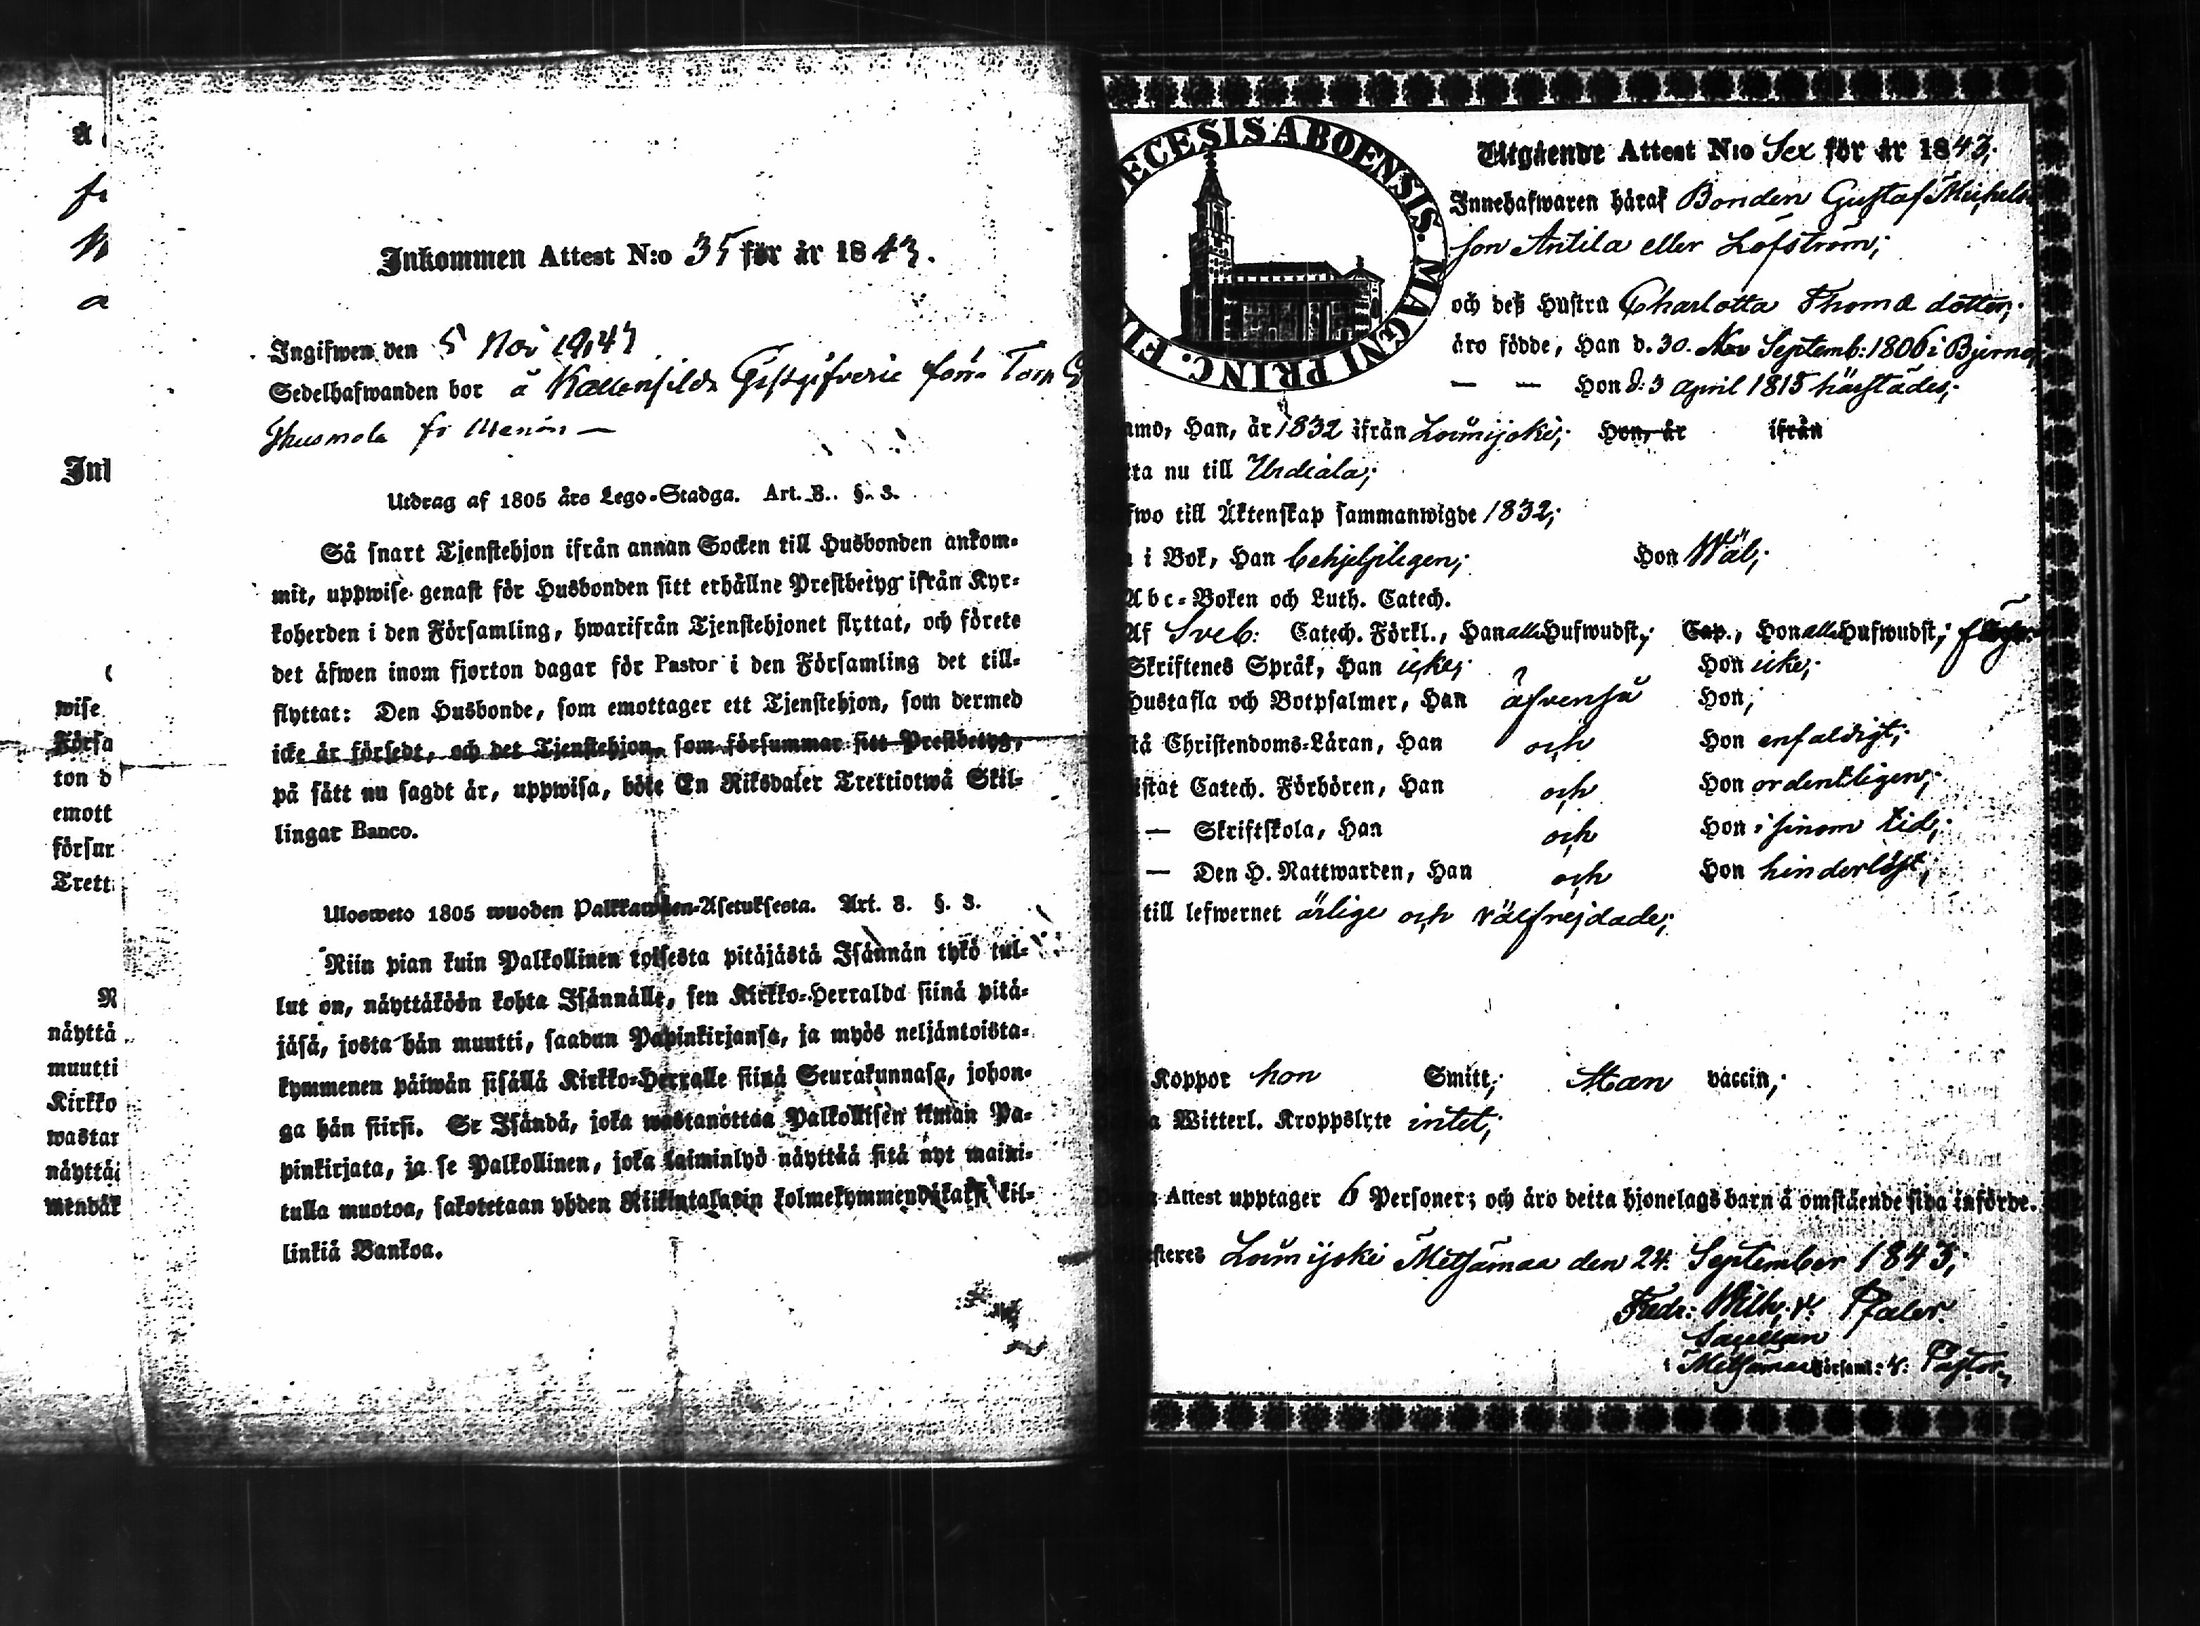 Å
Inkommen Attest N:o 35 för år 1843.
Ingifwen den 5 Nov 1843
Sedelhafwanden bor å Gästgifveri förra Torp
fr
Utdrag af 1805 års Lego-Stadga. Art. 8. §. 3.
Så snart Tjenstehjon ifrån annan Socken till Husbonden ankom-
mit, uppwise genast för Husbonden sitt erhållne Prestbetyg ifrån Kyr-
koherden i den Församling, hwarifrån Tjenstehjonet flyttat, och förete
det äfwen inom fjorton dagar för Pastor i den Församling det till-
flyttat: Den Husbonde, som emottager ett Tjenstehjon, som dermed
icke är försedt, och det Tjenstehjon, som försummar sitt Prestbetyg,
på sätt nu sagdt är, uppwisa, böte En Riksdaler Trettiotwå Skil-
lingar Banco.
Ulosweto 1805 wuoden Palkkawäen-Asetuksesta. Art. 8. §. 3.
Niin pian kuin Palkollinen toisesta pitäjästä Isännän tykö tul-
lut on, näyttäköön kohta Isännälle, sen Kirkko-Herralda siinä pitä-
jäsä, josta hän muutti, saadun Papinkirjansa, ja myös neljäntoista-
kymmenen päiwän sisällä Kirkko-Herralle siinä Seurakunnasa, johon-
ga hän siirsi. Se Isändä, joka wastanottaa Palkollisen ilman Pa-
pinkirjata, ja se Palkollinen, joka laiminlyö näyttää sitä nyt maini-
tulla muotoa, sakotetaan yhden Riikintalarin kolmekymmendäkaksi kil-
linkiä Bankoa.
Inl
wise
Förså
ton d
emott
försur
Trett
N
näyttä
muutti
Kirkko
wastar
näyttäi
mendäk
ECESIS ABOENSIS. MAGNI PRINC. FI
Utgående Attest N:o Sex för år 1843;
Innehafwaren häraf Bonden Gustaf Michels
son Antila eller Löfström;
och deß Hustru Charlotta Thomæ dotter;
äro födde, Han d. 30. Nov Septemb: 1806 i Bjerno,
— — Hon d: 3 April 1815 härstädes;
mo, Han, år 1832 ifrån Loimijoki; Hon, år ifrån
ta nu till Urdiala;
fwo till Äktenskap sammanwigde 1832;
i Bok, Han behjelpligen; Hon Wäl;
Abc-Boken och Luth. Catech.
Af Sveb: Catech. Förkl., Han alla Hufwudst; Cap., Hon alla Hufwudst;
Skriftenes Språk, Han icke; Hon icke;
Hustafla och Botpsalmer, Han äfvenså Hon;
tå Christendoms-Läran, Han och Hon enfaldigt;
istat Catech. Förhören, Han och Hon ordentligen;
— Skriftskola, Han och Hon i sinom tid;
— Den H. Nattwarden, Han och Hon hinderlöst;
till lefwernet ärlige och välfrejdade;
Koppor hon Smitt; Man vaccin;
a Witterl. Kroppslyte intet;
Attest upptager 6 Personer; och äro detta hjonelags barn å omstående sida införde.
steres Loimijoki Metsämaa den 24. September 1843;
Fredr: Wilh: v: Pfaler.
Sacellan
i Metsämaa Församl: v: Pastor